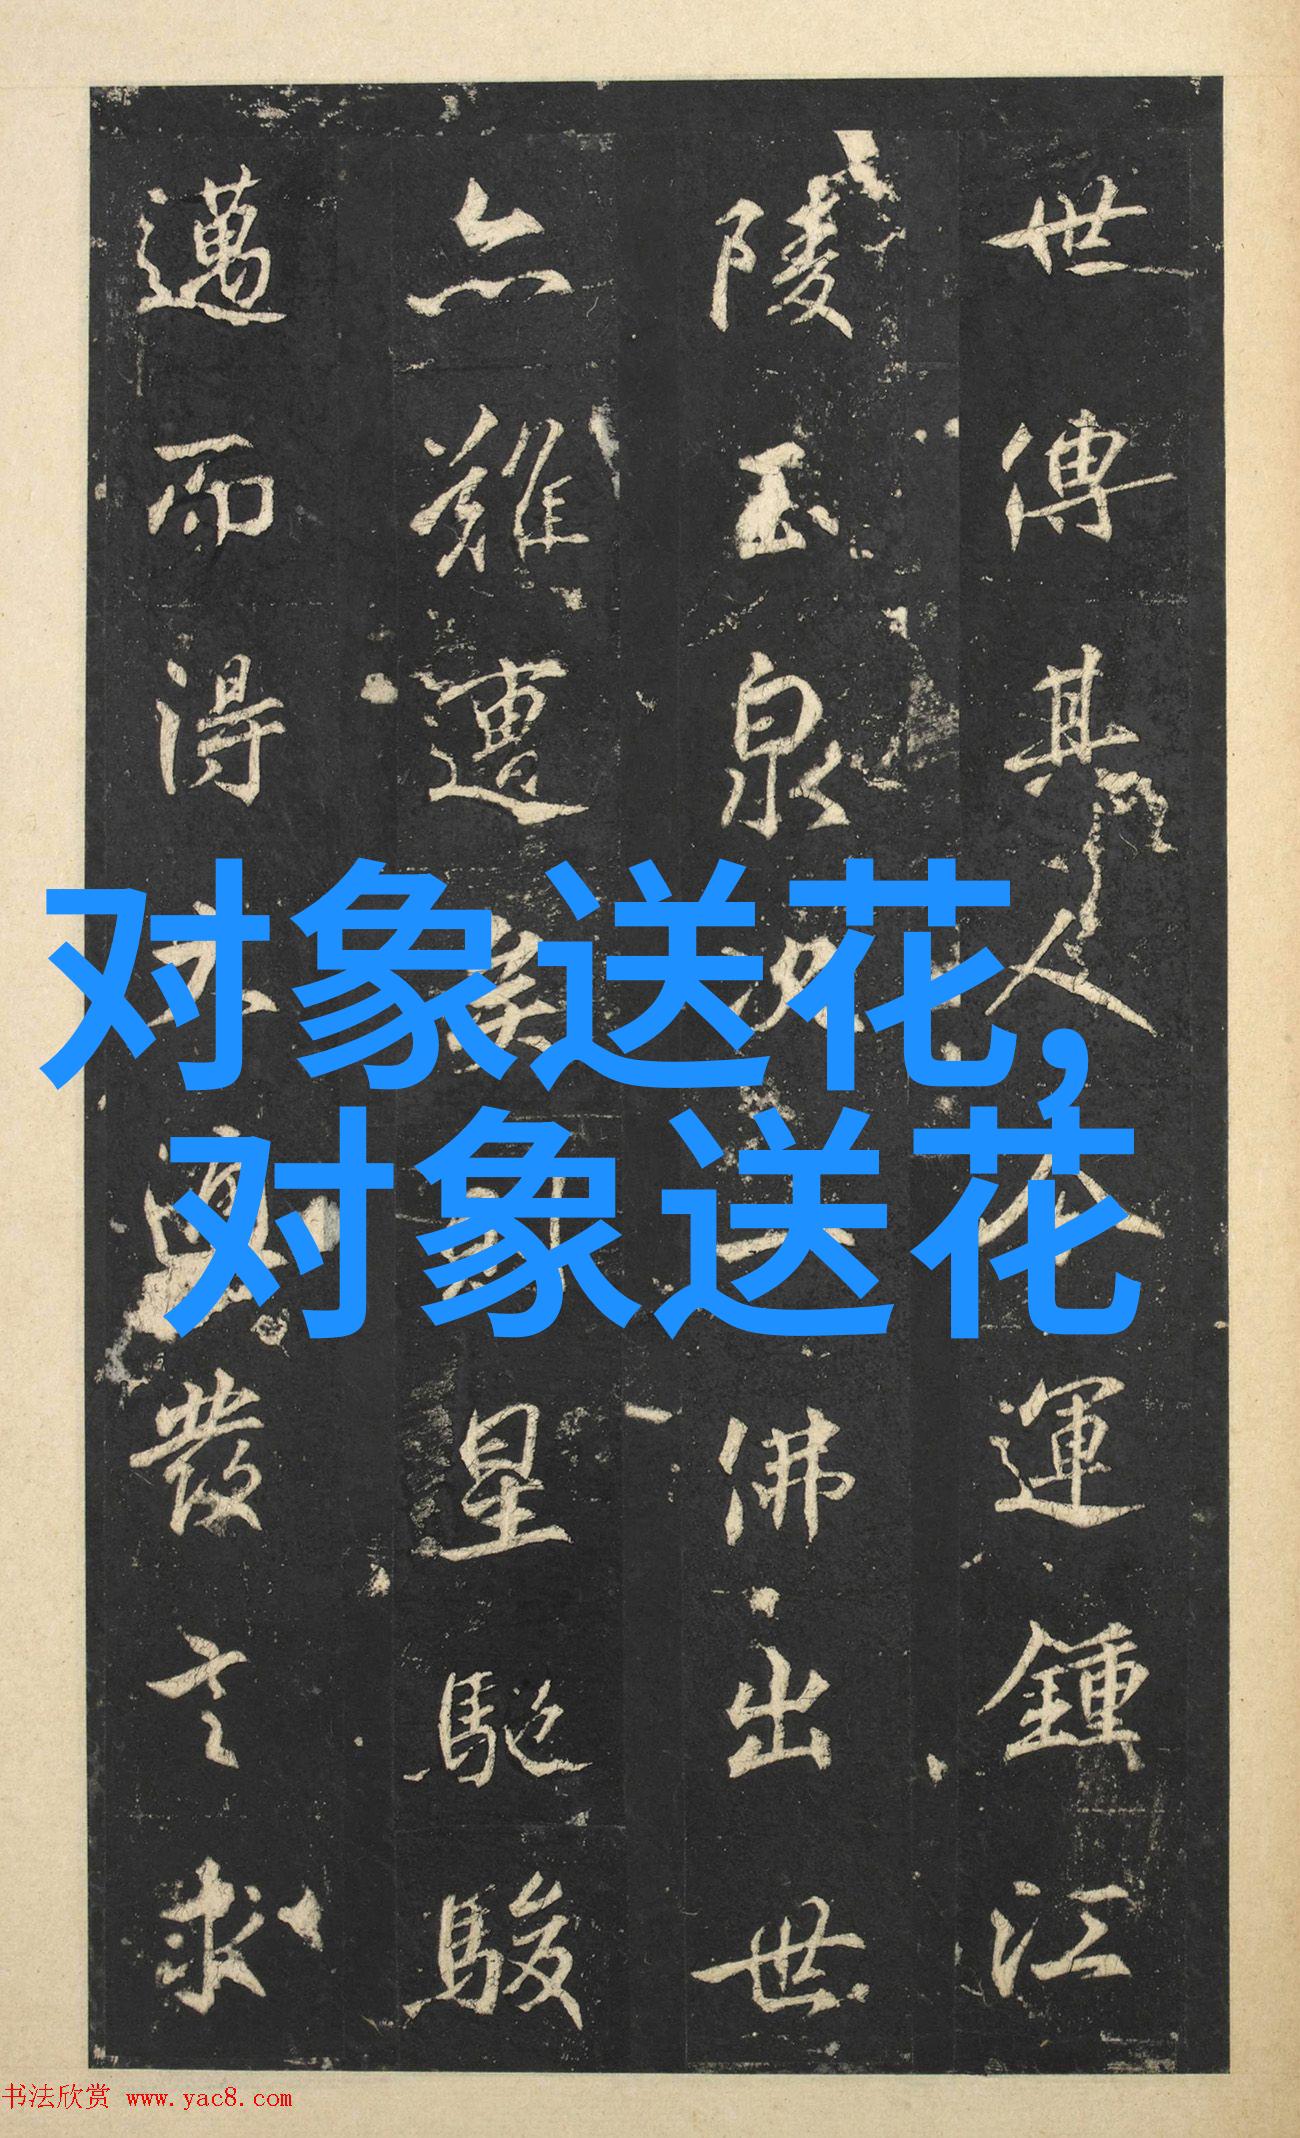 世傳其人運鍾江
陵玉泉佛出世
亦難遭矣星馳駿
邁而得發求
对象送花,
对象送花
书法欣赏 www.yac8.com